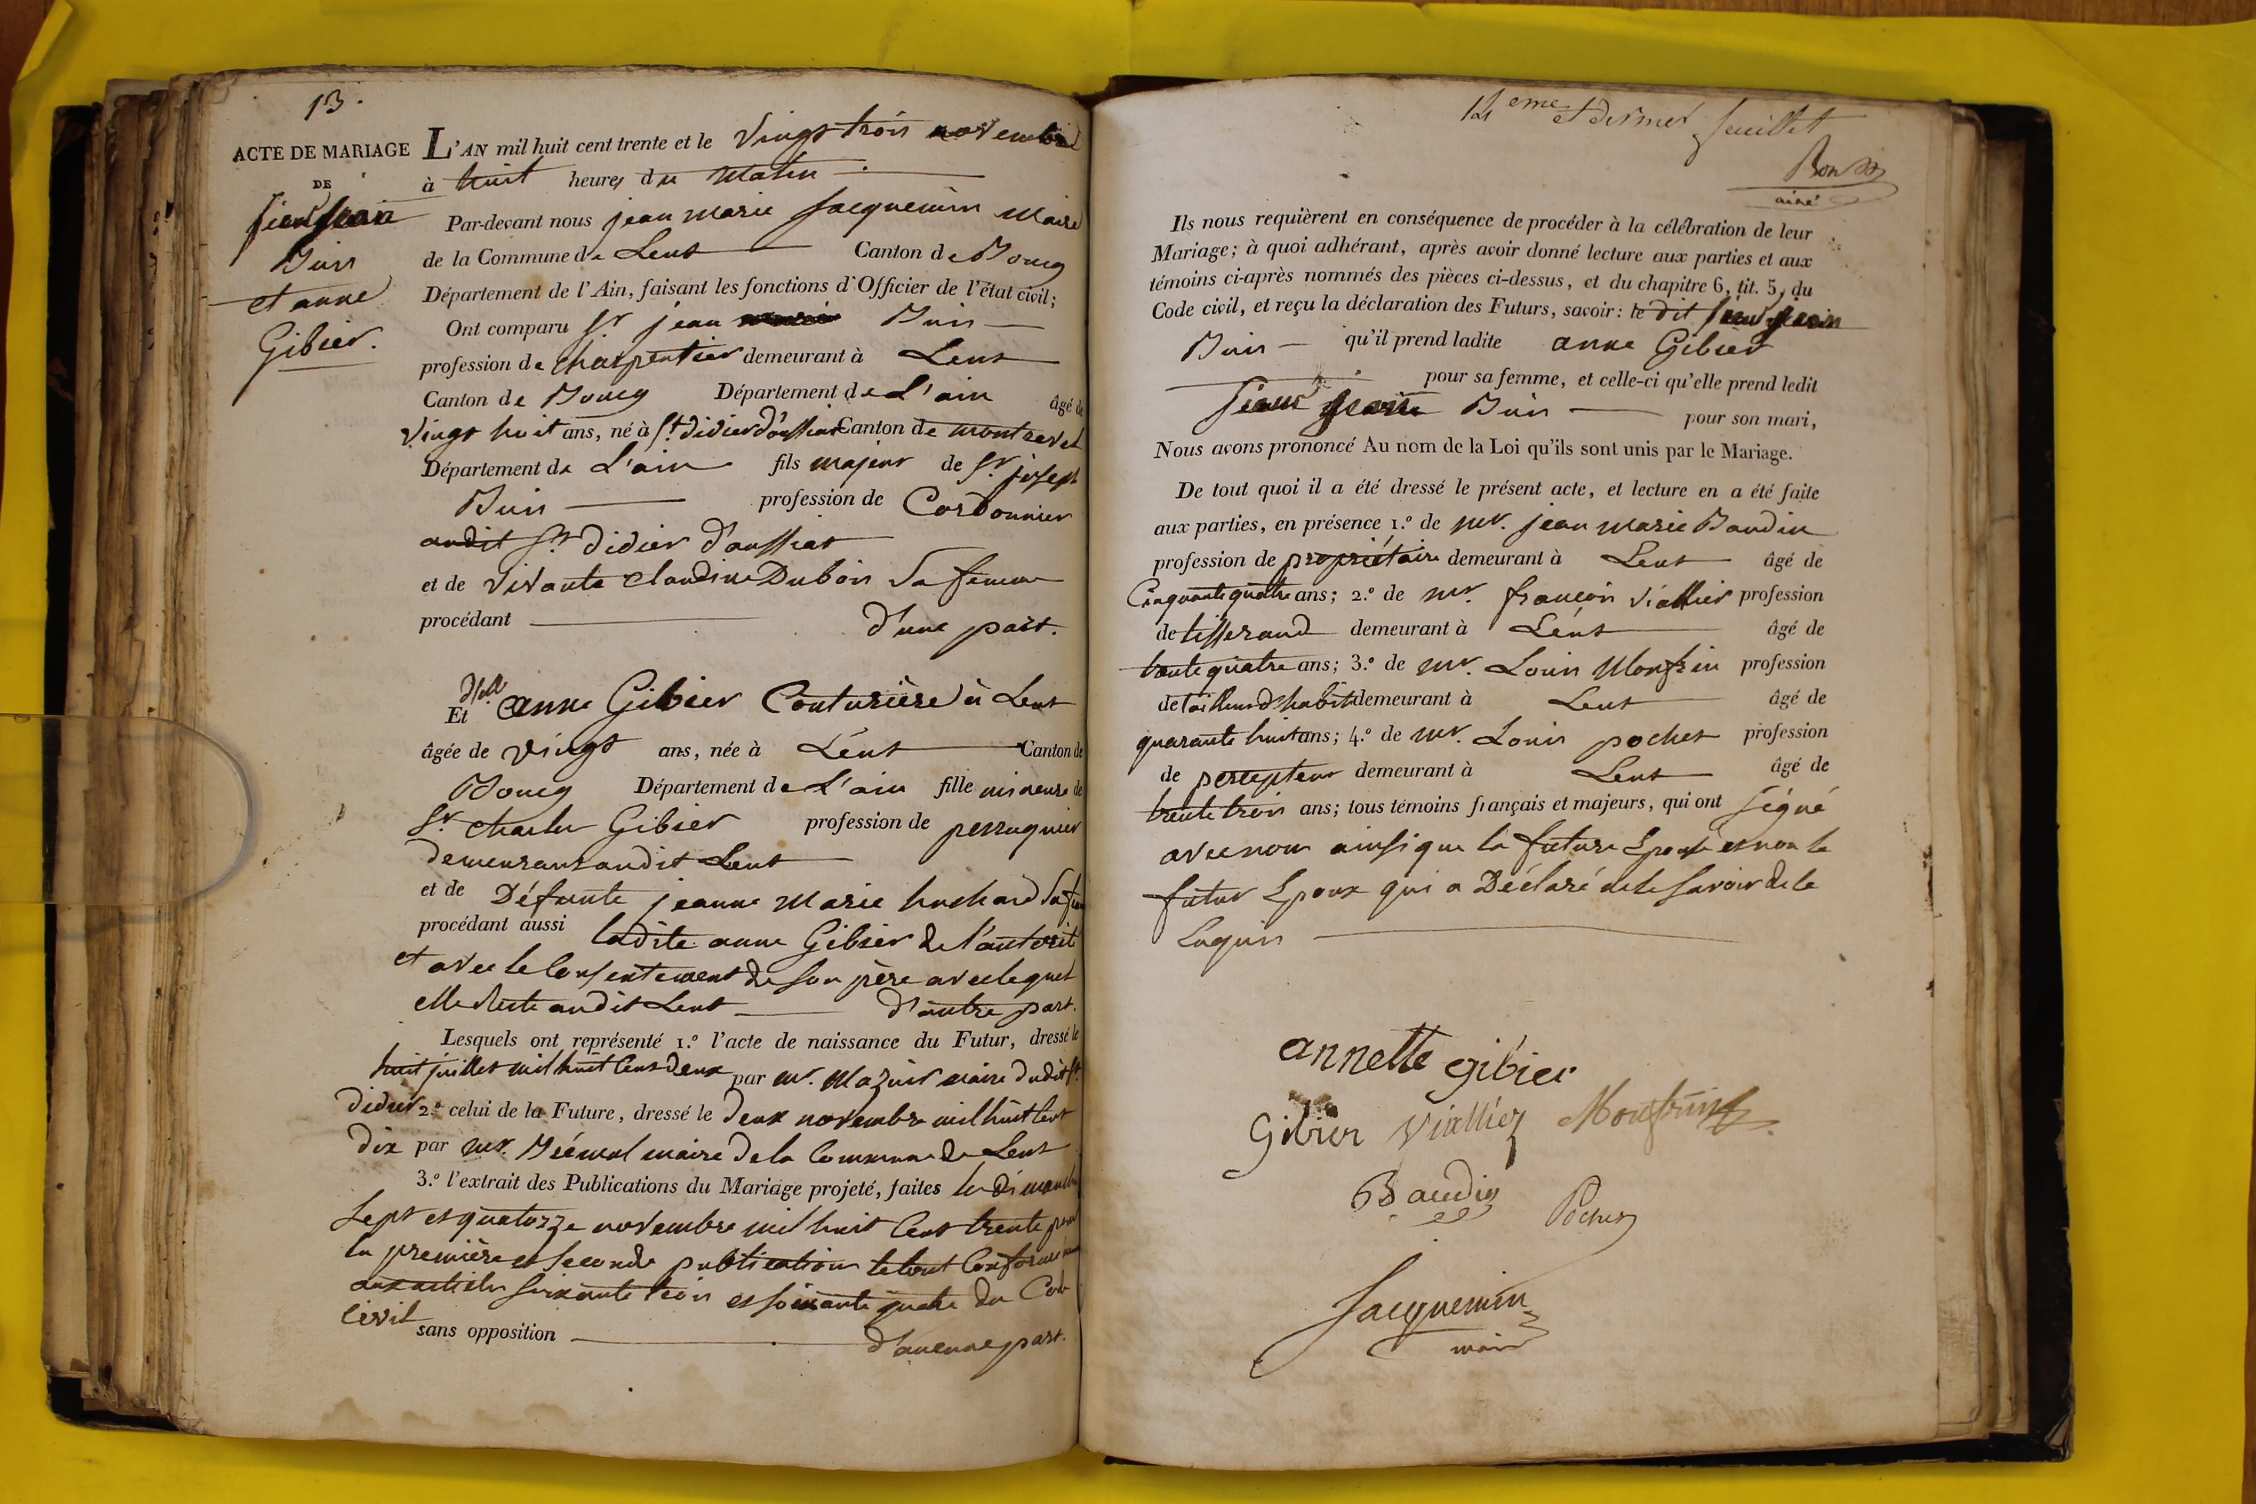 13.
ACTE DE MARIAGE
DE
Sieur Jean
Buis
et anne
Gibier.
L'AN mil huit cent trente et le vingt trois novembre
à huit heures du matin
Par-devant nous jean marie Jacquemin maire
de la Commune de Lent Canton de Bourg
Département de l'Ain, faisant les fonctions d'Officier de l'état civil;
Ont comparu Sr jean Buis
profession de charpentier demeurant à Lent
Canton de Bourg Département de L'ain âgé de
vingt huit ans, né à St didier d'aussiat Canton de montrevel
Département de L'ain fils majeur de Sr joseph
Buis profession de Cordonnier
audit St didier d'aussiat
et de vivante claudine Dubois Sa femme
procédant d'une part.
Et dlle anne Gibier Couturière à Lent
âgée de vingt ans, née à Lent Canton de
Bourg Département de L'ain fille mineure de
Sr charles Gibier profession de perruquier
demeurant audit Lent
et de Défunte jeanne marie huchard Sa
procédant aussi ladite anne Gibier de l'autorité
et avec le Consentement de Son père avec lequel
elle Reste audit Lent d'autre part.
Lesquels ont représenté 1.º l'acte de naissance du Futur, dressé le
huit juillet mil huit Cent deux par mr. Mazuir maire dudit St
didier 2.º celui de la Future, dressé le deux novembre mil huit Cent
dix par mr. maire de la Commune de Lent
3.º l'extrait des Publications du Mariage projeté, faites les dimanches
Sept et quatorze novembre mil huit Cent trente pour
la première et Seconde publication le tout Conformément
aux articles Soixante trois et soixante quatre du Code
Civil sans opposition d'aucune part.
14eme et dernier feuillet
ainé
Ils nous requièrent en conséquence de procéder à la célébration de leur
Mariage; à quoi adhérant, après avoir donné lecture aux parties et aux
témoins ci-après nommés des pièces ci-dessus, et du chapitre 6, tit. 5, du
Code civil, et reçu la déclaration des Futurs, savoir: le dit Sieur Jean
Buis qu'il prend ladite anne Gibier
pour sa femme, et celle-ci qu'elle prend ledit
Sieur Jean Buis pour son mari,
Nous avons prononcé Au nom de la Loi qu'ils sont unis par le Mariage.
De tout quoi il a été dressé le présent acte, et lecture en a été faite
aux parties, en présence 1.º de mr. jean marie Baudin
profession de propriétaire demeurant à Lent âgé de
Cinquante quatre ans; 2.º de mr. françois Viallier profession
de tisserand demeurant à Lent âgé de
trente quatre ans; 3.º de mr. Louis Monfrin profession
de tailleur d'habits demeurant à Lent âgé de
quarante huit ans; 4.º de mr. Louis pochet profession
de percepteur demeurant à Lent âgé de
trente trois ans; tous témoins français et majeurs, qui ont Signé
avec nous ainsi que la future Epouse et non le
futur Epoux qui a Déclaré ne le Savoir de ce
Enquis
annette gibier
Gibier Viallier Monfrin
Baudin Pochet
Jacquemin
maire